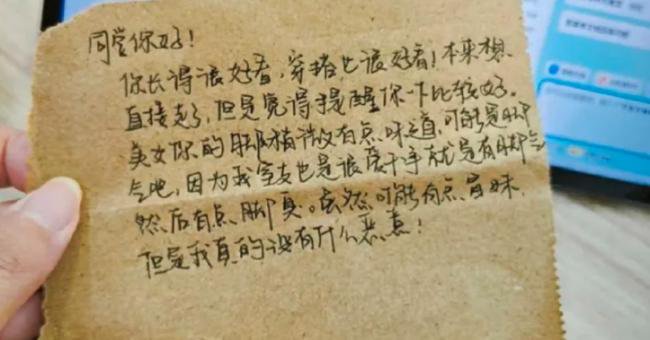 同学你好!
你长得很好看,穿搭也很好看!本来想
直接走了,但是觉得提醒你一下比较好。
美女你的脚稍微有点味道,可能是脚
气吧,因为我室友也是很爱干净就是有脚气
然后有点脚臭。虽然可能有点冒昧,
但是我真的没有什么恶意!